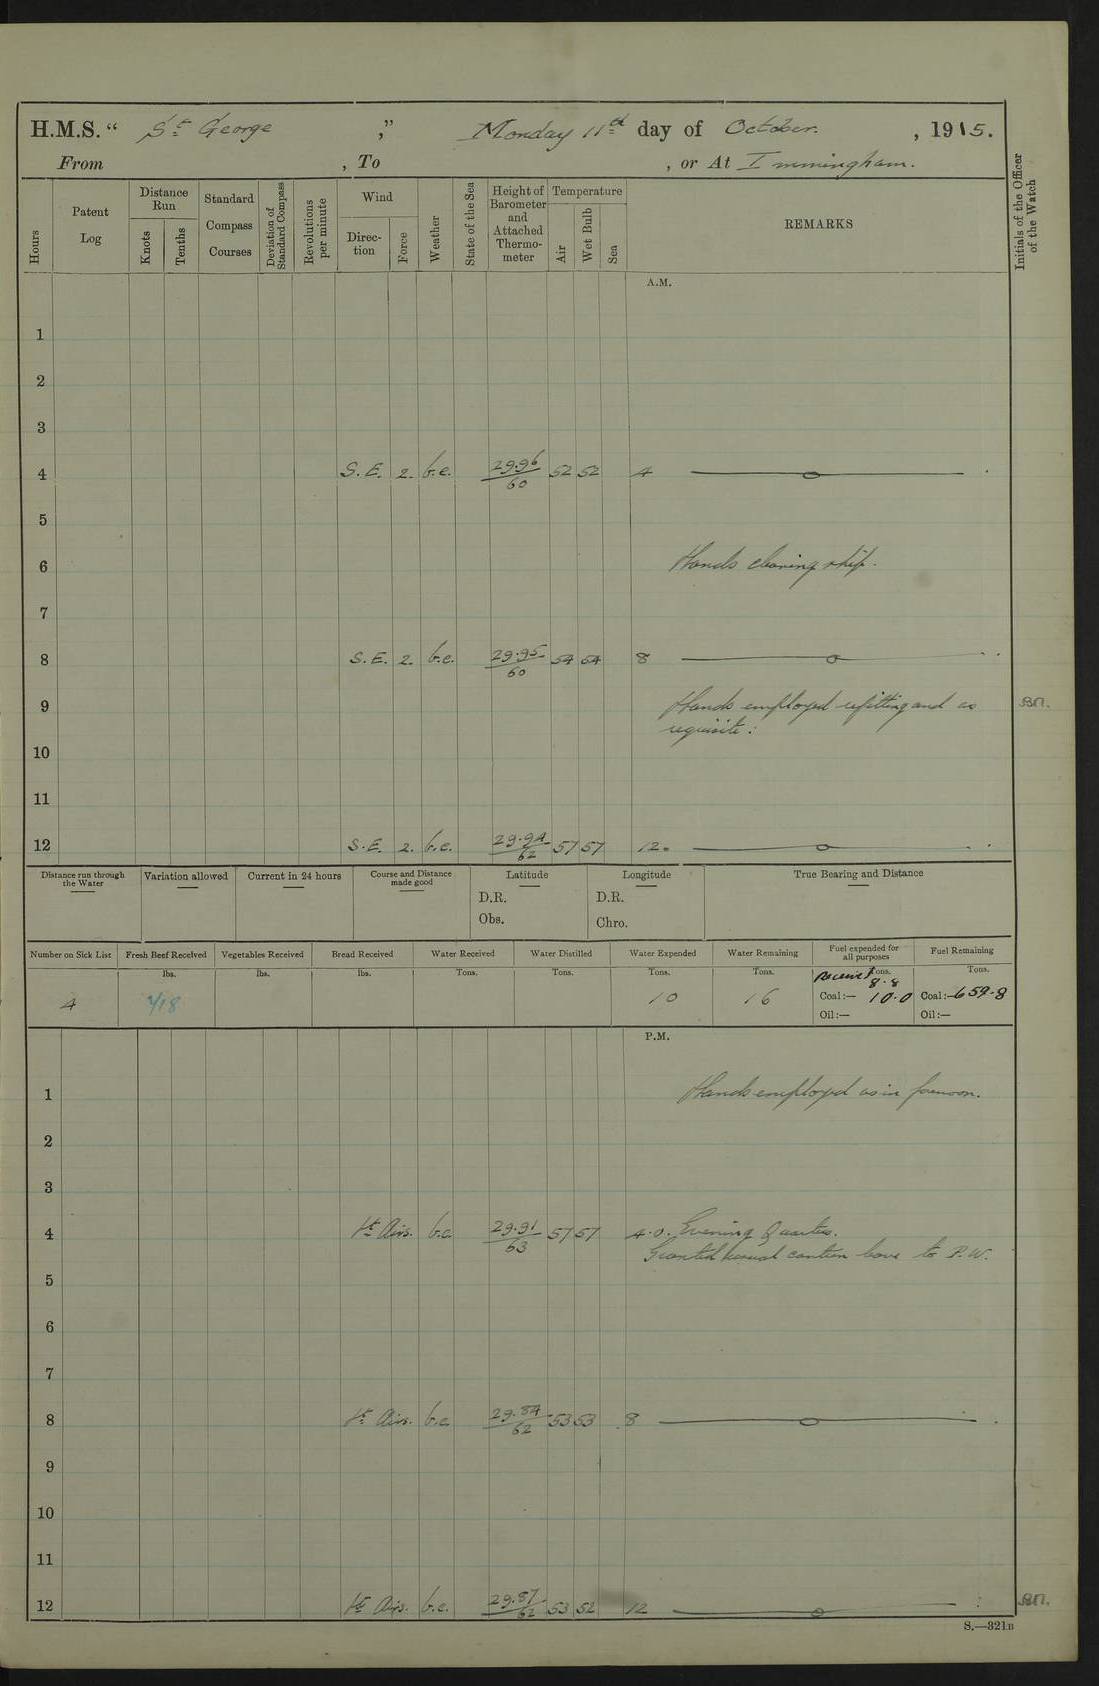 H.M.S. “ St George ,” Monday 11th day of October. , 1915.
From , To , or At Immingham.
Hours
Patent Log
Distance Run
Knots
Tenths
Standard Compass Courses
Deviation of Standard Compass
Revolutions per minute
Wind
Direction
Force
Weather
State of the Sea
Height of Barometer and Attached Thermometer
Temperature
Air
Wet Bulb
Sea
REMARKS
Initials of the Officer of the Watch
A.M.
1
2
3
4 S.E. 2. b.c. 29.96/60 52 52 4
5
6 Hands cleaning ship.
7
8 S.E. 2. b.c. 29.95/60 54 54 8
9 Hands employed refitting and as
requisite.
10
11
12 S.E. 2. b.c. 29.94/62 57 57 12.
Distance run through the Water
Variation allowed
Current in 24 hours
Course and Distance made good
Latitude
D.R.
Obs.
Longitude
D.R.
Chro.
True Bearing and Distance
Number on Sick List
4
Fresh Beef Received
lbs.
418
Vegetables Received
lbs.
Bread Received
lbs.
Water Received
Tons.
Water Distilled
Tons.
Water Expended
Tons.
10
Water Remaining
Tons.
16
Fuel expended for all purposes
Tons.
Received 8.8
Coal:— 10.0
Oil:—
Fuel Remaining
Tons.
Coal:— 659.8
Oil:—
P.M.
1 Hands employed as in forenoon.
2
3
4 Lt Airs. b.c. 29.91/63 57 57 4.0. Evening Quarters.
Granted usual canteen leave to P.W.
5
6
7
8 Lt Airs. b.c. 29.84/62 53 53 8
9
10
11
12 Lt Airs. b.c. 29.87/62 53 52 12
S.—321B